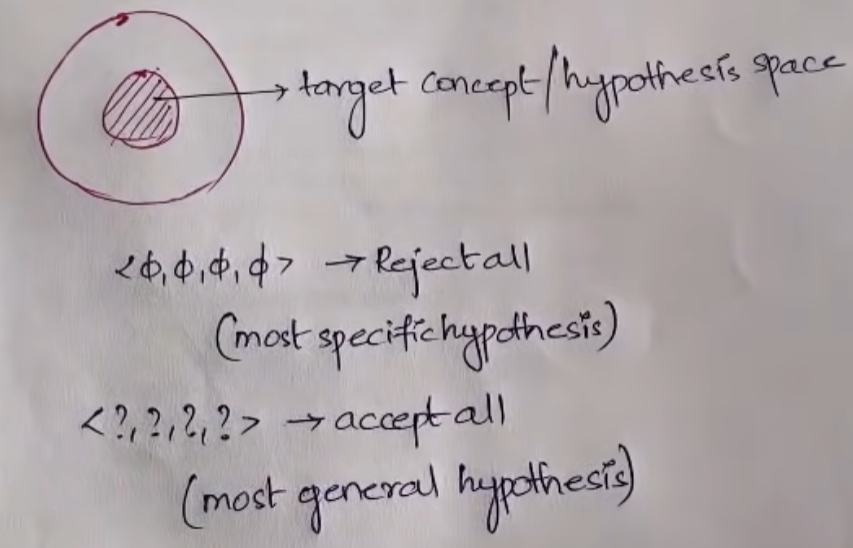 target concept/hypothesis space
<ϕ,ϕ,ϕ,ϕ> → Reject all
(most specific hypothesis)
<?,?,?,?> → accept all
(most general hypothesis)